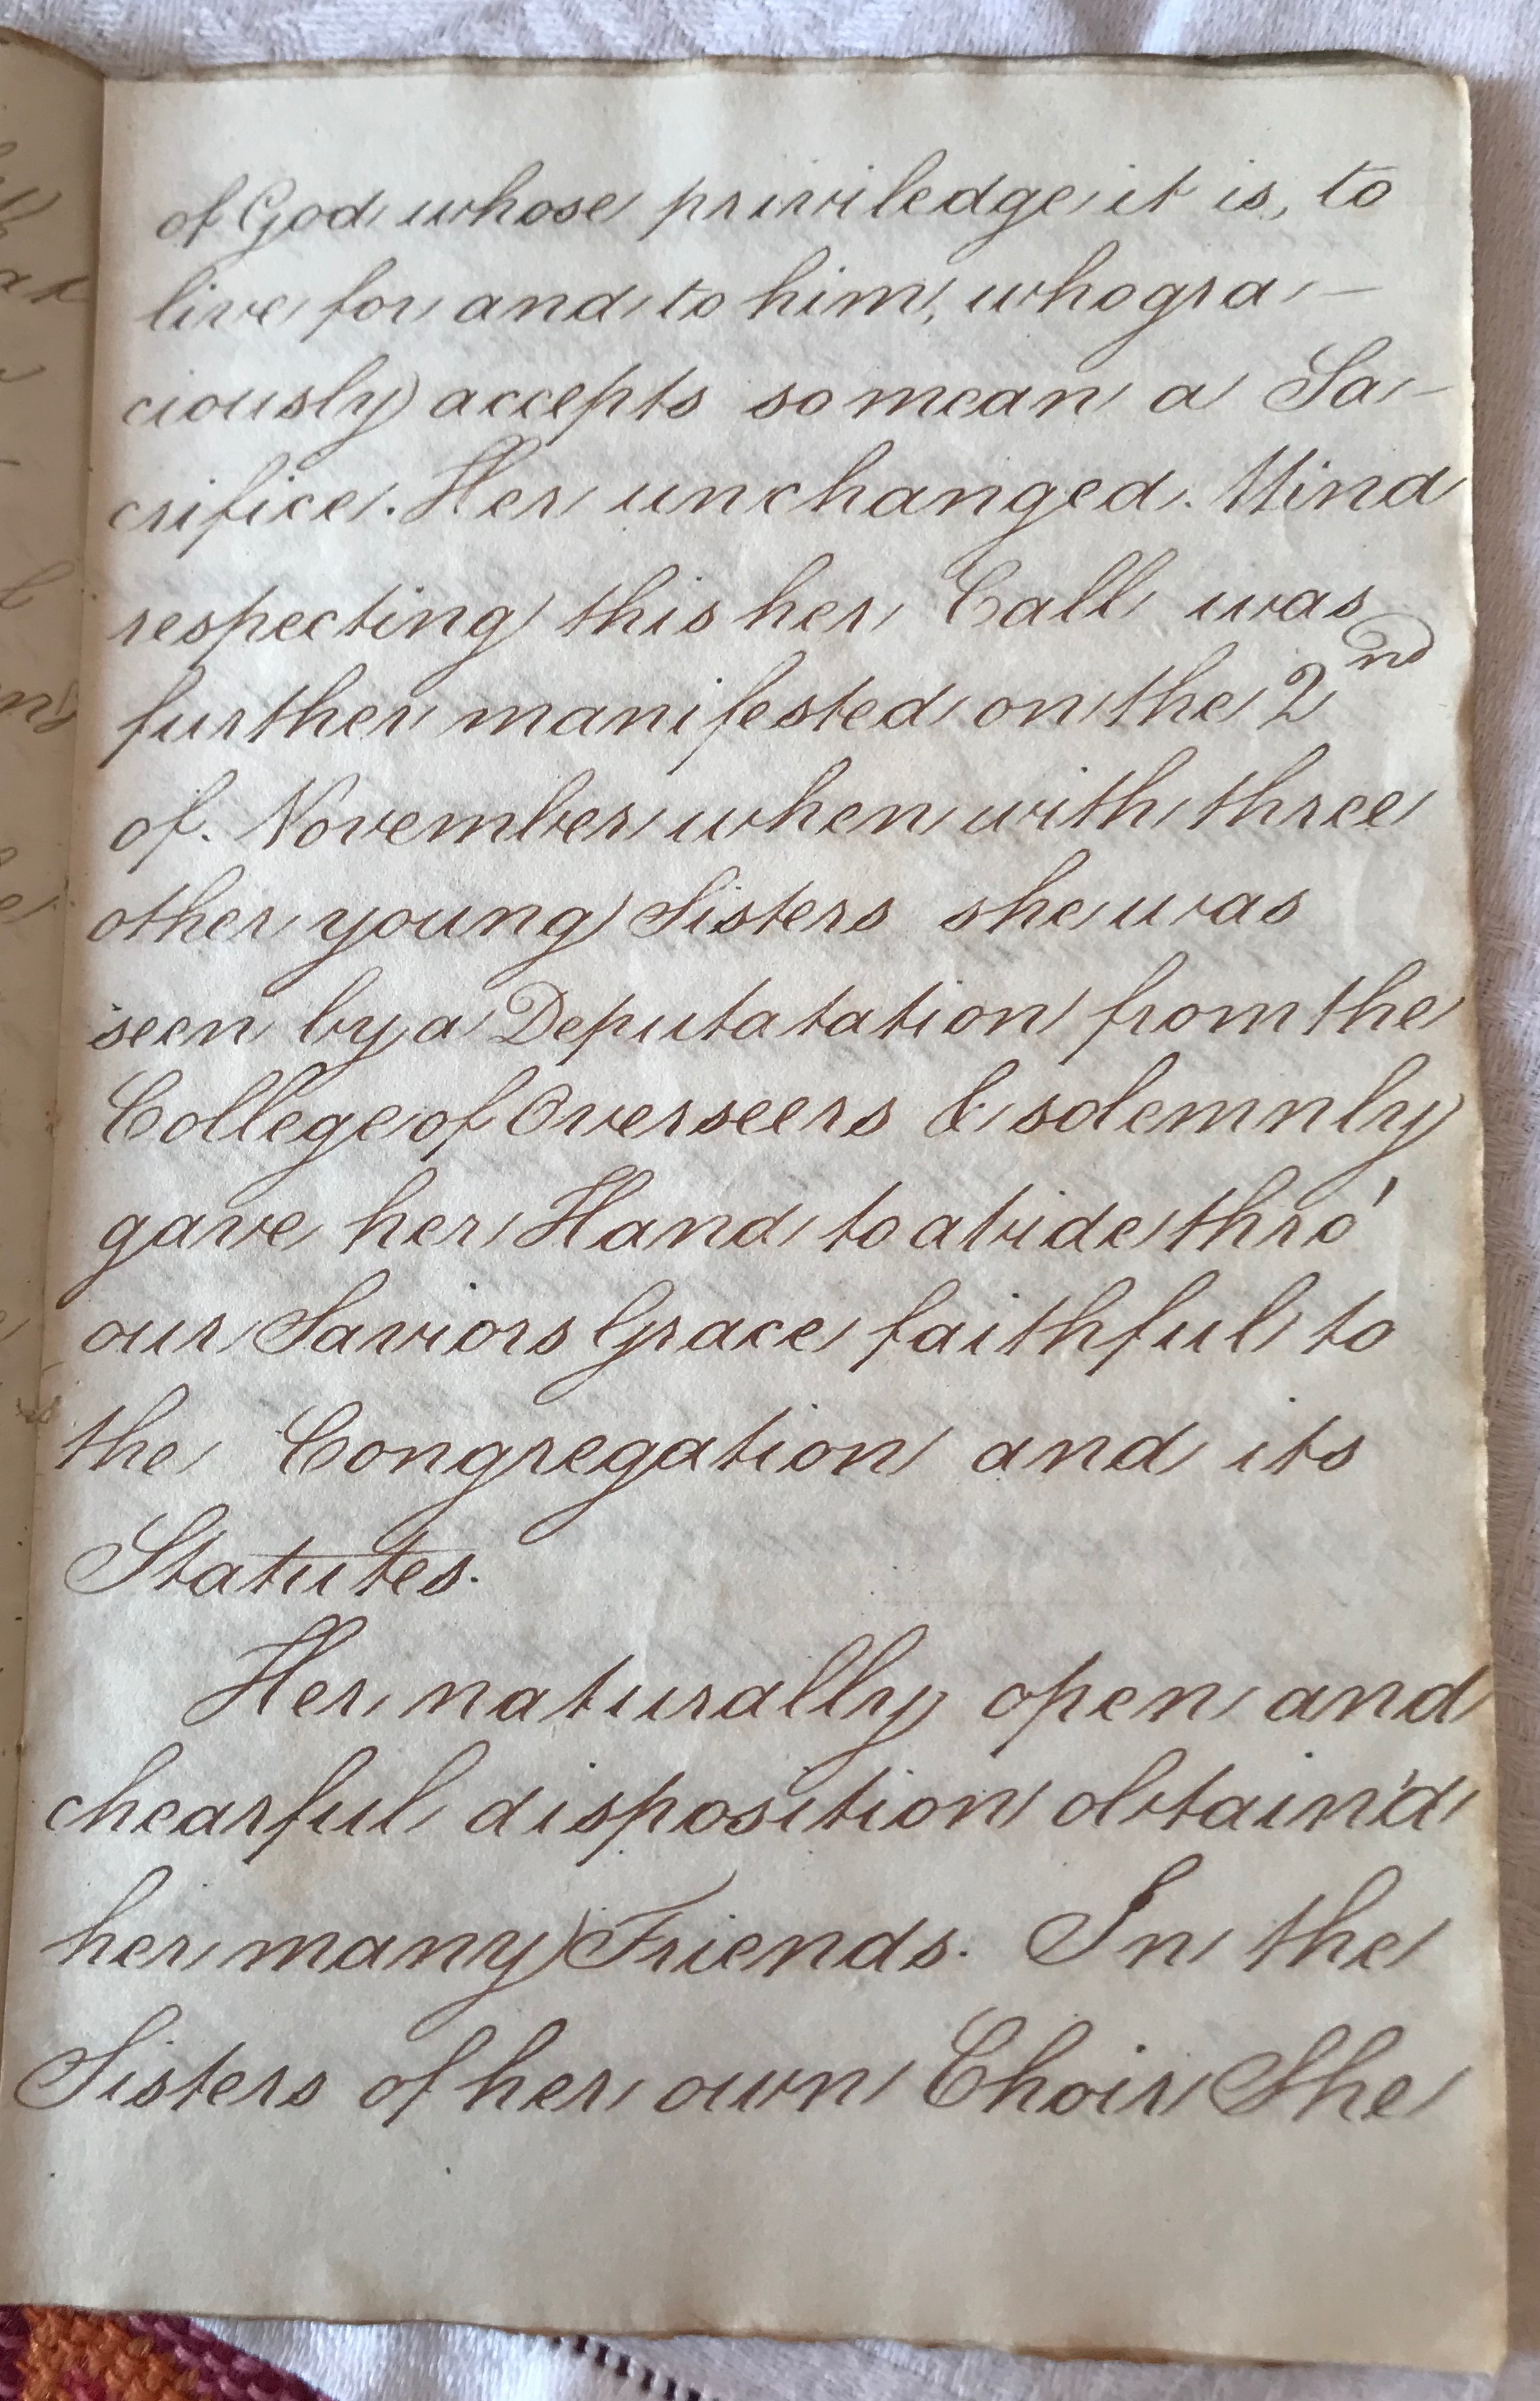 of God whose priviledge it is, to
live for and to him, who gra-
ciously accepts so mean a Sa-
crifice. Her unchanged Mind
respecting this her Call was
further manifested on the 2nd
of November when with three
other young Sisters she was
seen by a Deputatation from the
College of Overseers & solemnly
gave her Hand to abide thro'
our Saviors Grace faithful to
the Congregation and its
Statutes.
Her naturally open and
chearful disposition obtain'd
her many Friends. In the
Sisters of her own Choir She